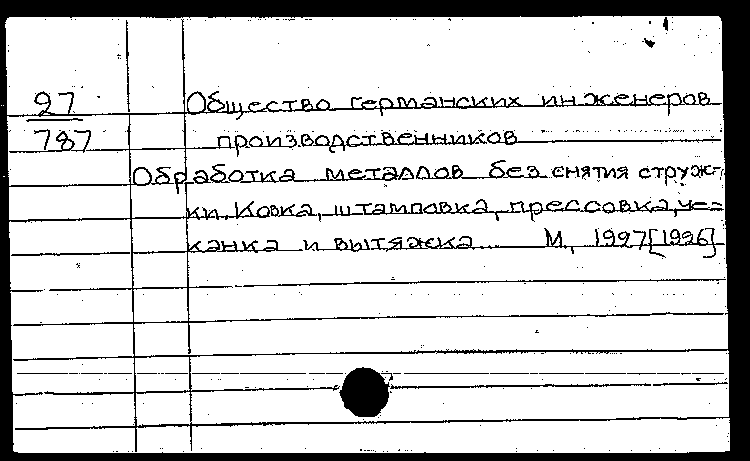 27 Общество германских инженеров
787 производственников
Обработка металлов без снятия струж-
ки. Ковка, штамповка, прессовка, че=
канка и вытяжка... М., 1927[1926]